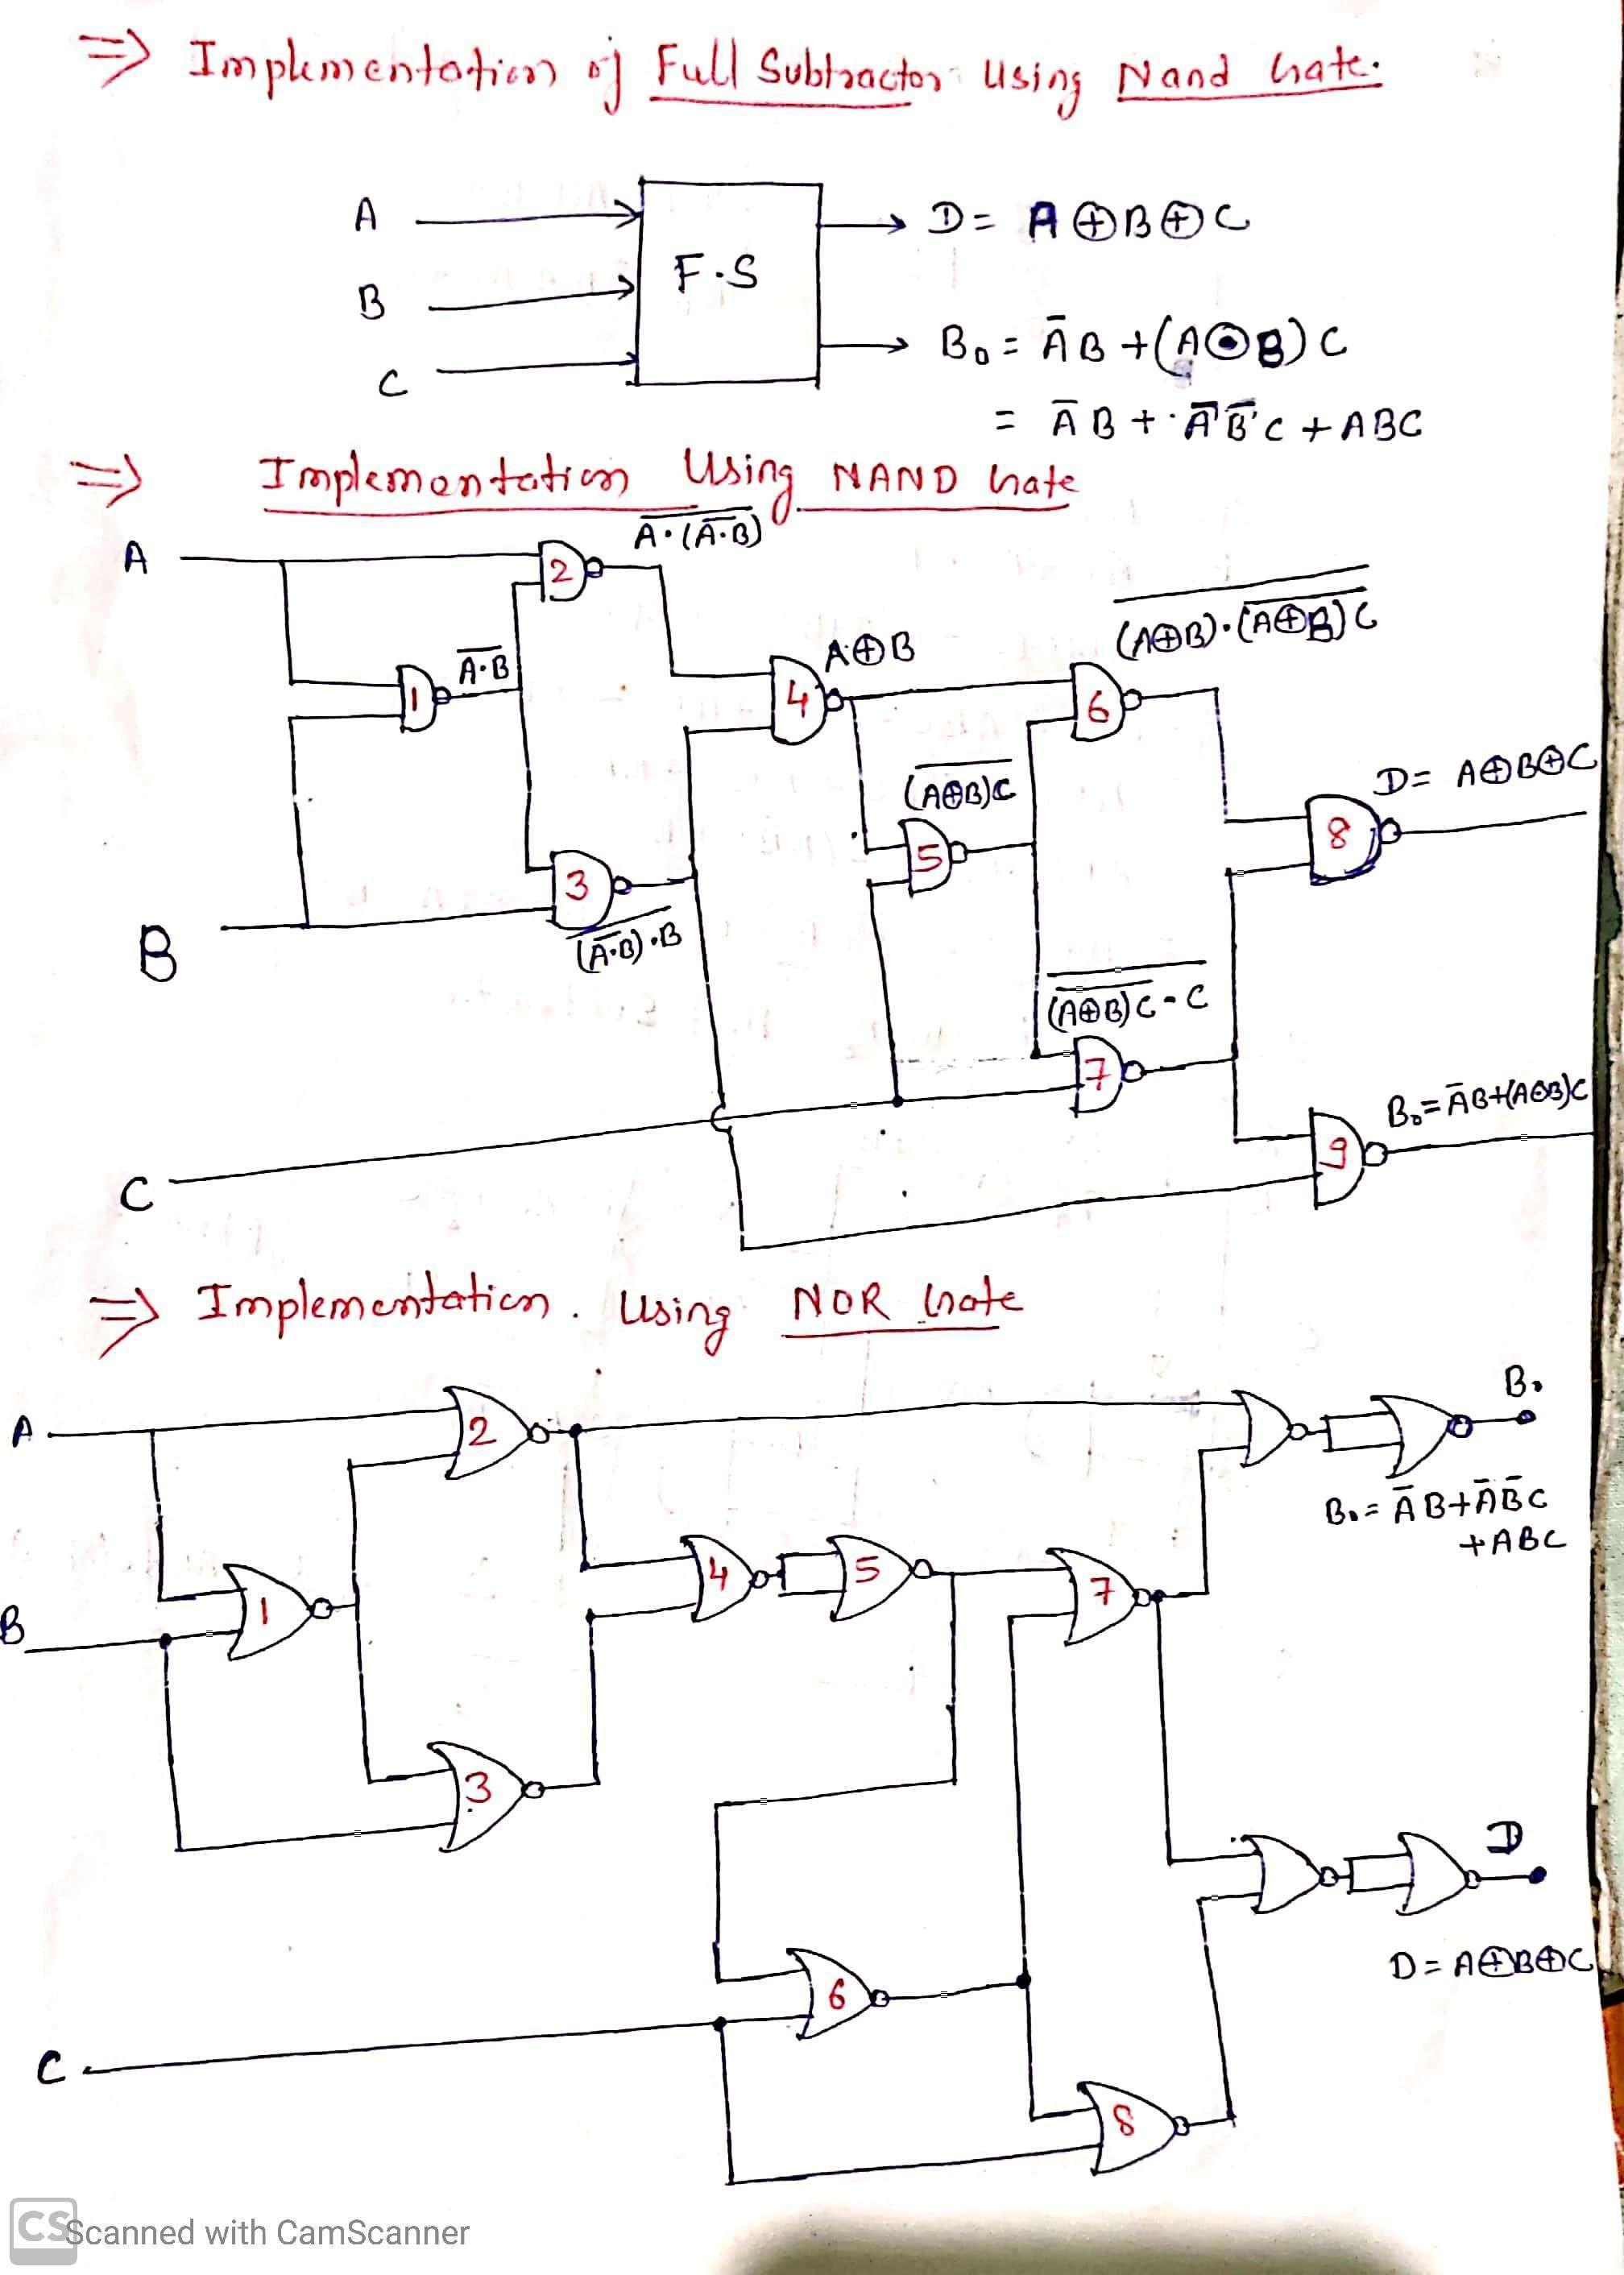 ⇒ Implementation of Full Subtractor Using Nand Gate.
A
B
C
F.S
D = A ⊕ B ⊕ C
B₀ = A̅B + (A⊙B)C
= A̅B + A̅B̅C + ABC
⇒ Implementation Using NAND Gate
A
B
C
1
A̅·̅B̅
2
A̅·̅(̅A̅·̅B̅)̅
3
(̅A̅·̅B̅)̅·̅B̅
4
A⊕B
5
(̅A̅⊕̅B̅)̅C̅
6
(̅A̅⊕̅B̅)̅·̅(̅A̅⊕̅B̅)̅C̅
7
(̅A̅⊕̅B̅)̅C̅·̅C̅
8
D = A⊕B⊕C
9
B₀ = A̅B+(A⊙B)C
⇒ Implementation. Using NOR Gate
A
B
C
1
2
3
4
5
6
7
8
B₀
B₀ = A̅B+A̅B̅C
+ABC
D
D = A⊕B⊕C
CS Scanned with CamScanner